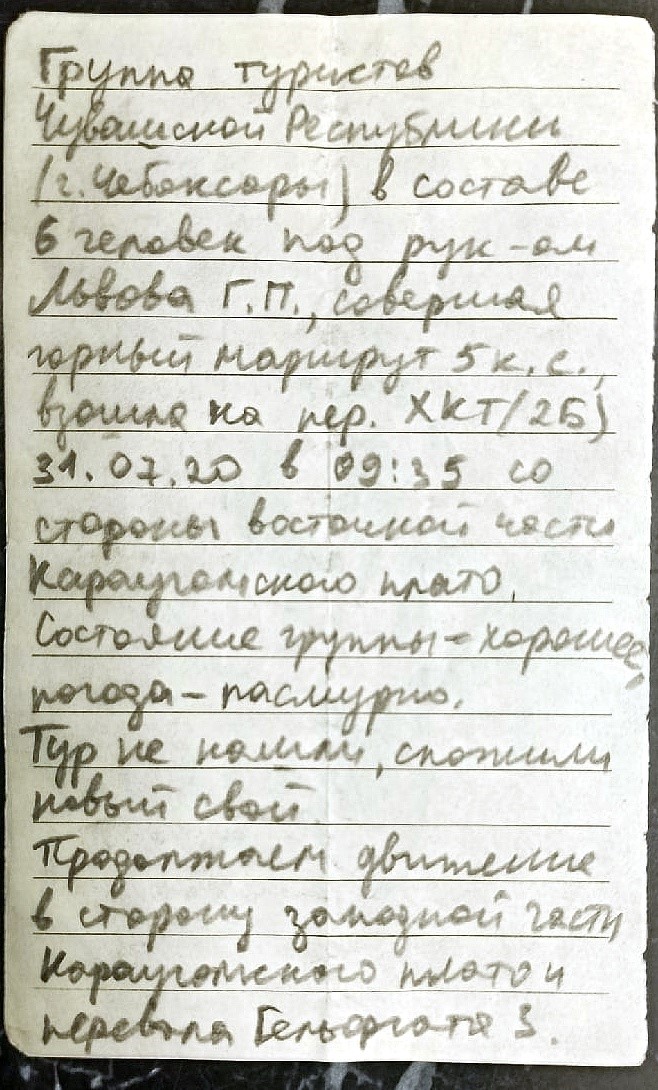 Группа туристов
Чувашской Республики
(г. Чебоксары) в составе
6 человек под рук-ом
Львова Г.П., совершая
горный маршрут 5 к.с.,
взошла на пер. ХКТ(2Б)
31.07.20 в 09:35 со
стороны восточной части
Караугомского плато.
Состояние группы - хорошее,
погода - пасмурно.
Тур не нашли, сложили
новый свой
Продолжаем движение
в сторону западной части
Караугомского плато и
перевала Гельфгата З.